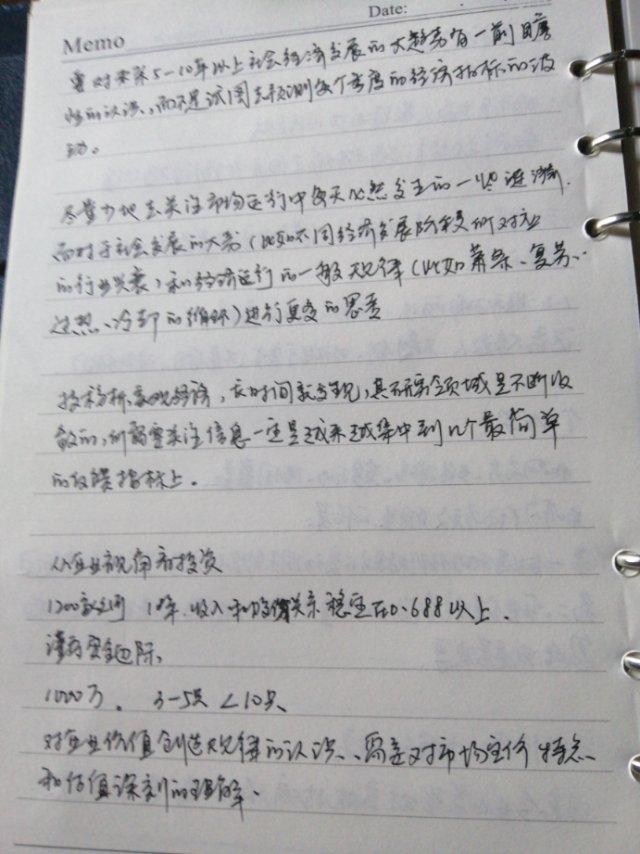 Memo
Date:
要对未来5-10年以上社会经济发展的大趋势有一前瞻
性的认识,而不是试图去预测每个季度的经济指标的波
动。
尽量少地去关注市场运行中每天必然发生的一些涟漪.
而对于社会发展的大势(比如不同经济发展阶段所对应
的行业兴衰)和经济运行的一般规律(比如萧条、复苏、
过热、冷却的循环)进行更多的思考
投资分析宏观经济,长时间就发现,其研究领域是不断收
敛的,所需要关注信息一定是越来越集中到几个最简单
的反馈指标上.
从企业视角看投资
1200 10年.收入和股价关系稳定在0.688以上.
谨存安全边际.
1000万. 3-5只 <10只
对企业价值创造规律的认识、需要对市场定价特点
和估值深刻的理解.